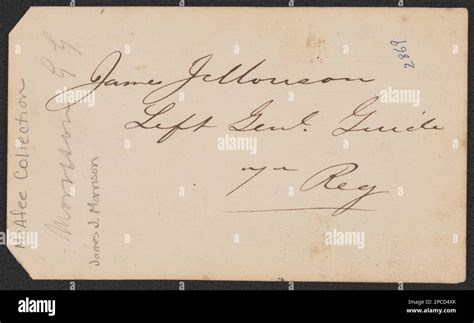 James J Morrison
Left Genl. Guide
7th Reg
2869
McAfee Collection
Morrison
James J. Morrison
alamy
Image ID: 2PCD4XK
www.alamy.com